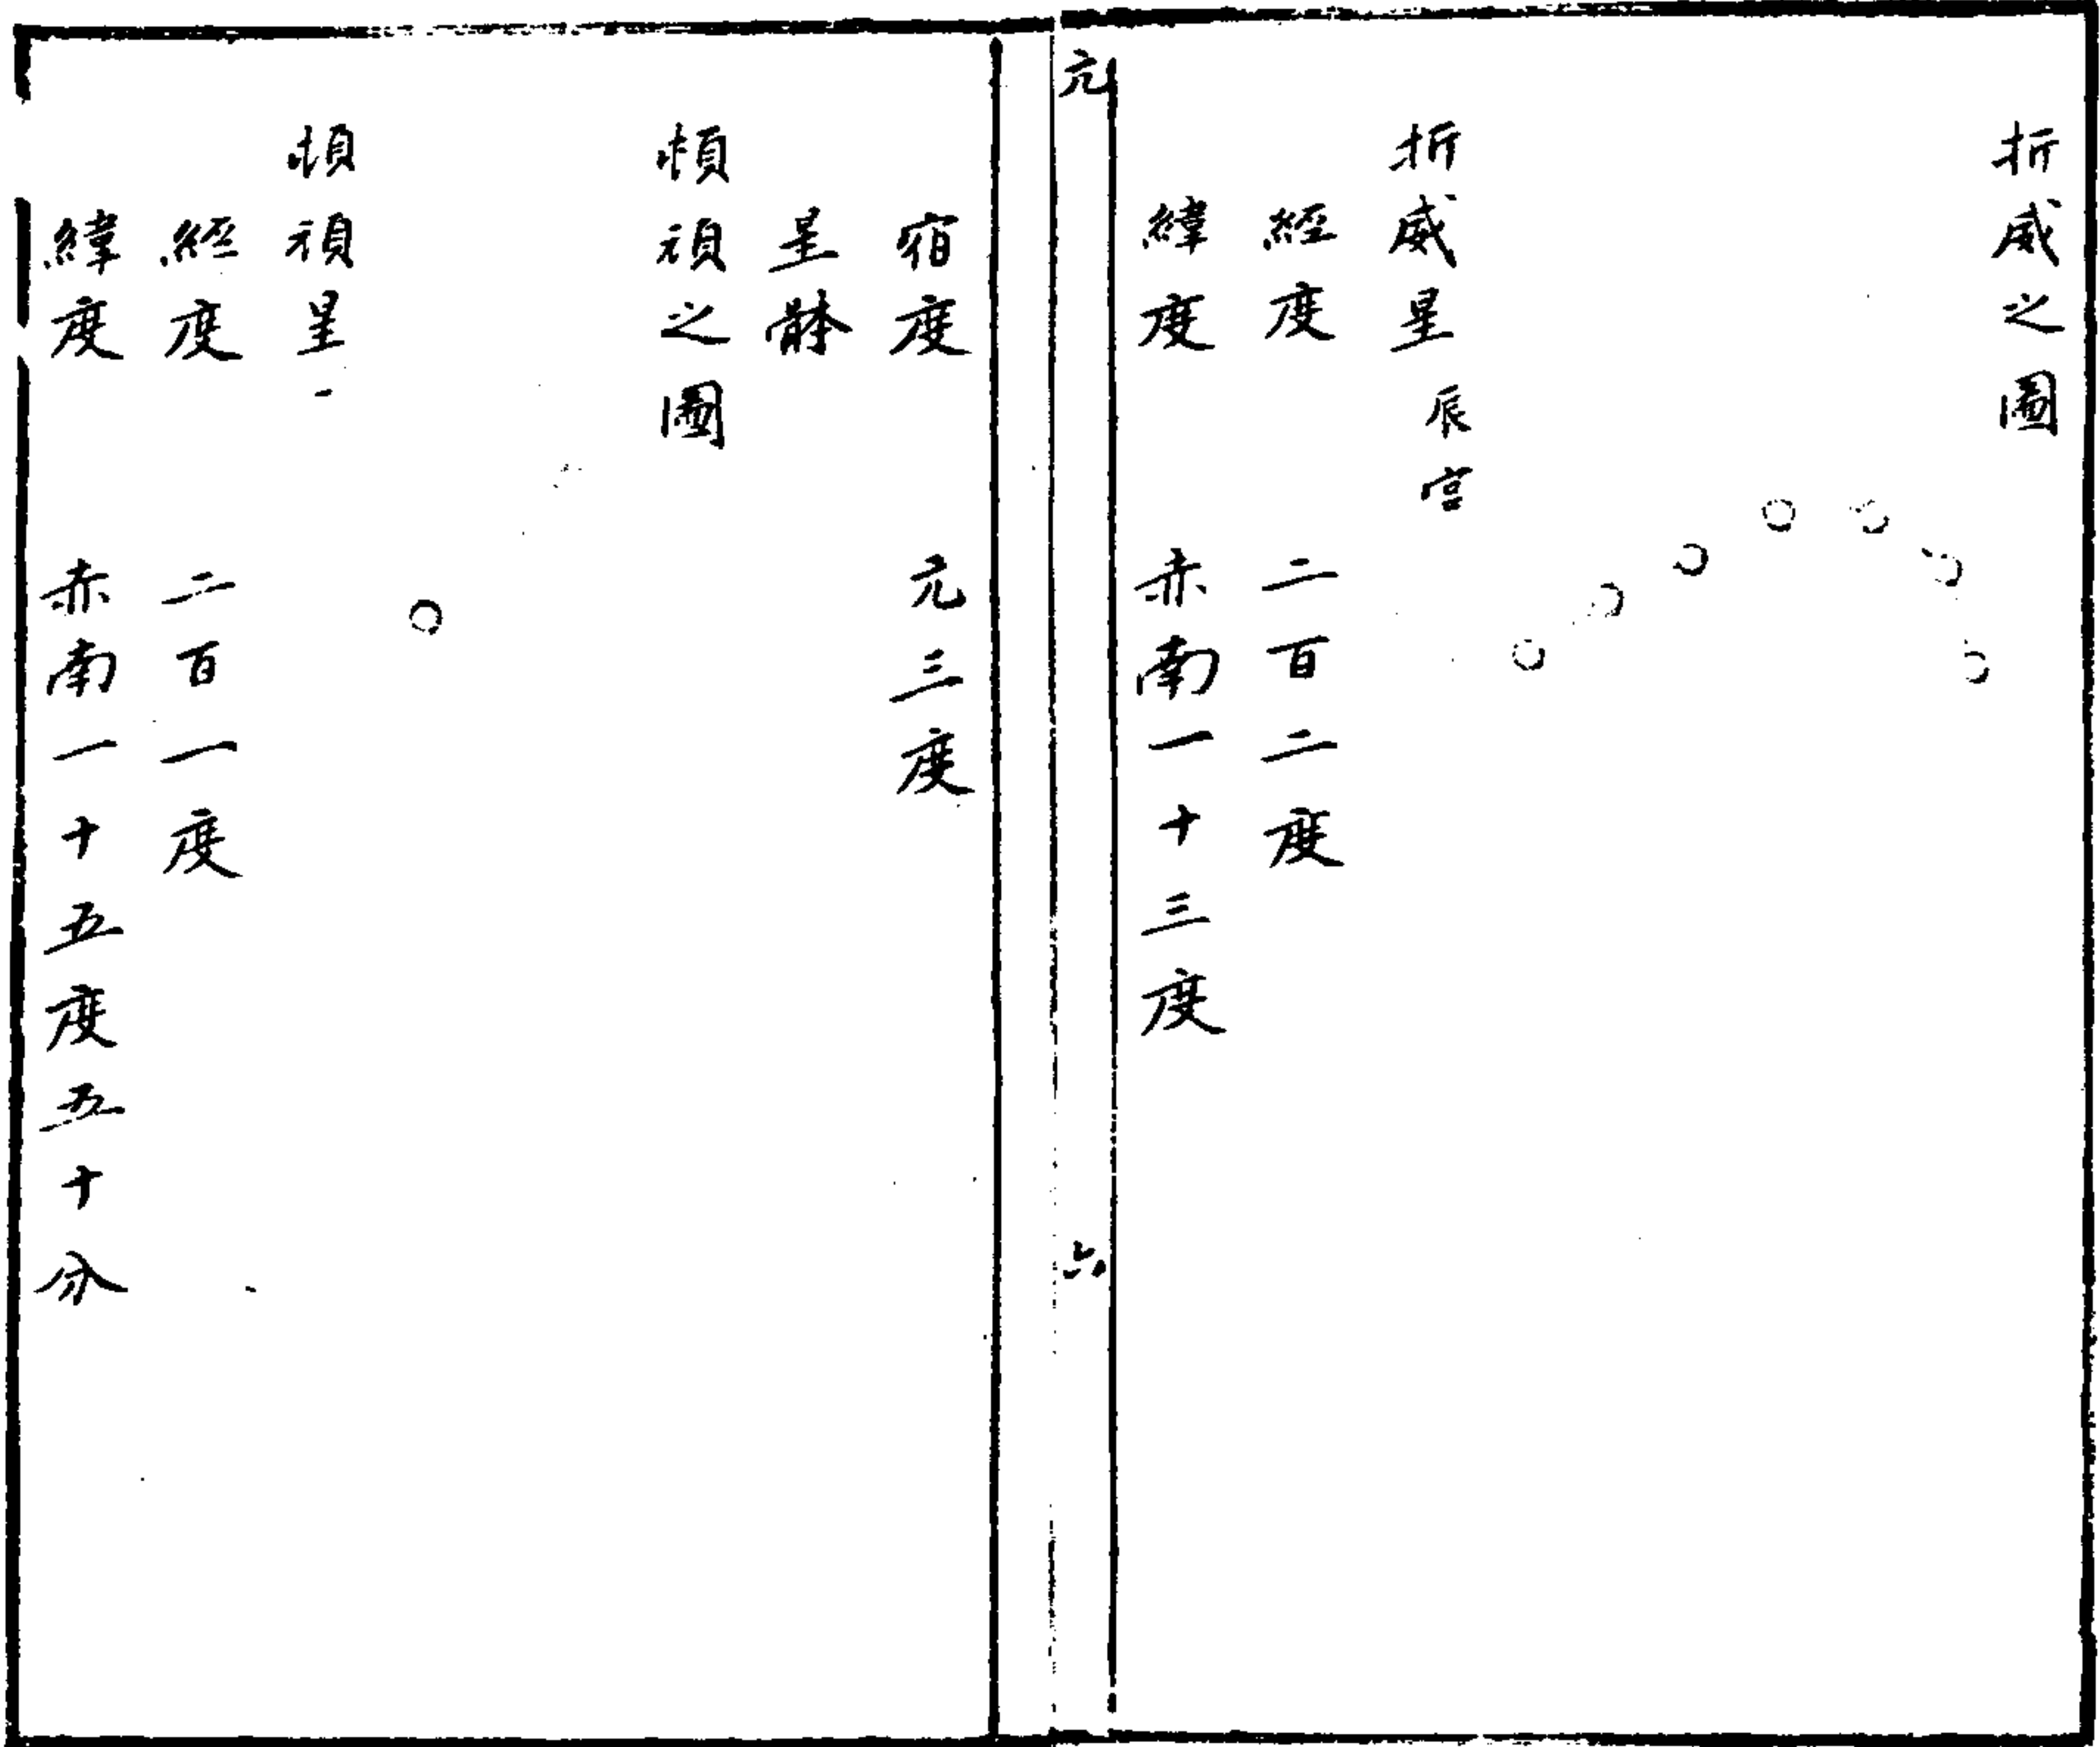 折威之圖
折威星 辰宮
經度 二百二度
緯度 赤南一十三度
亢 六
宿度 亢三度
星躰
頓頑之圖
頓頑星一
經度 二百一度
緯度 赤南一十五度五十分